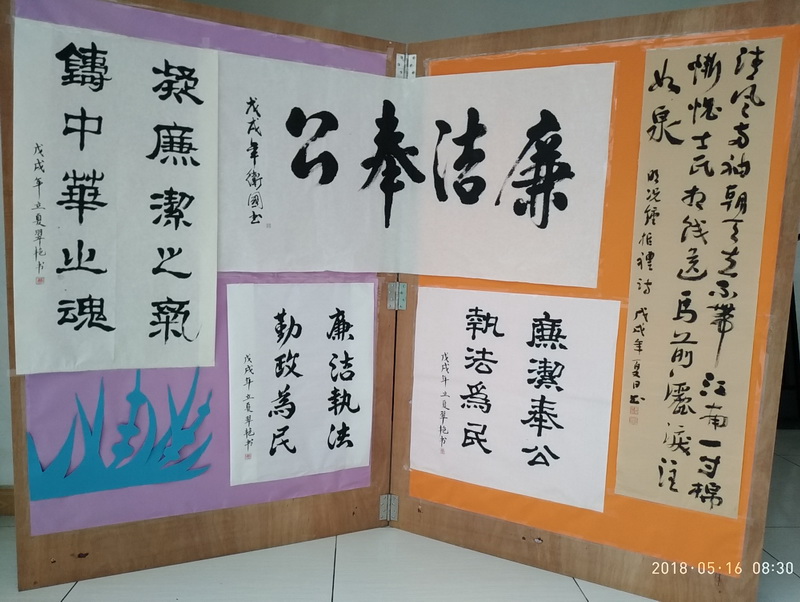 凝廉潔之氣
鑄中華之魂
戊戌年立夏翠艳书
廉洁奉公
戊戌年衛國书
廉洁執法
勤政為民
戊戌年立夏翠艳书
廉潔奉公
執法爲民
戊戌年立夏翠艳书
清风两袖朝天去不帶江南一寸棉
惭愧士民相饯送马前灑淚注
如泉
明况鐘拒禮诗 戊戌年夏日书
2018·05·16 08:30